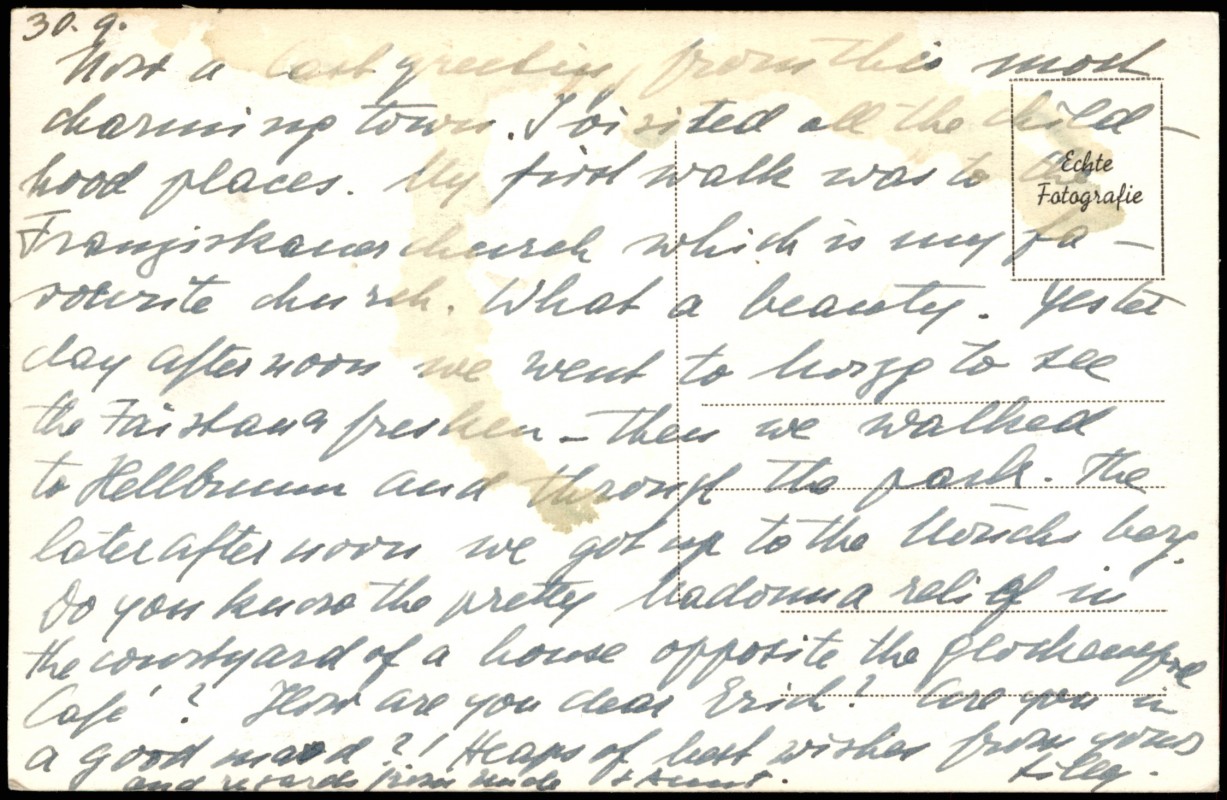 30. 9.
Now a last greeting from this most
charming town. I visited all the child-
hood places. My first walk was to the
Franziskanerchurch which is my fa-
vourite church. What a beauty. Yester
day afternoon we went to Morzg to see
the Faistauer fresken - then we walked
to Hellbrunn and through the park. The
later afternoon we got up to the Mönchsberg.
Do you know the pretty Madonna relief in
the courtyard of a house opposite the Glockenspiel
Café? How are you dear Erich? Are you in
a good mood?! Heaps of best wishes from yours
Lilly.
and regards from uncle + Aunt.
Echte
Fotografie